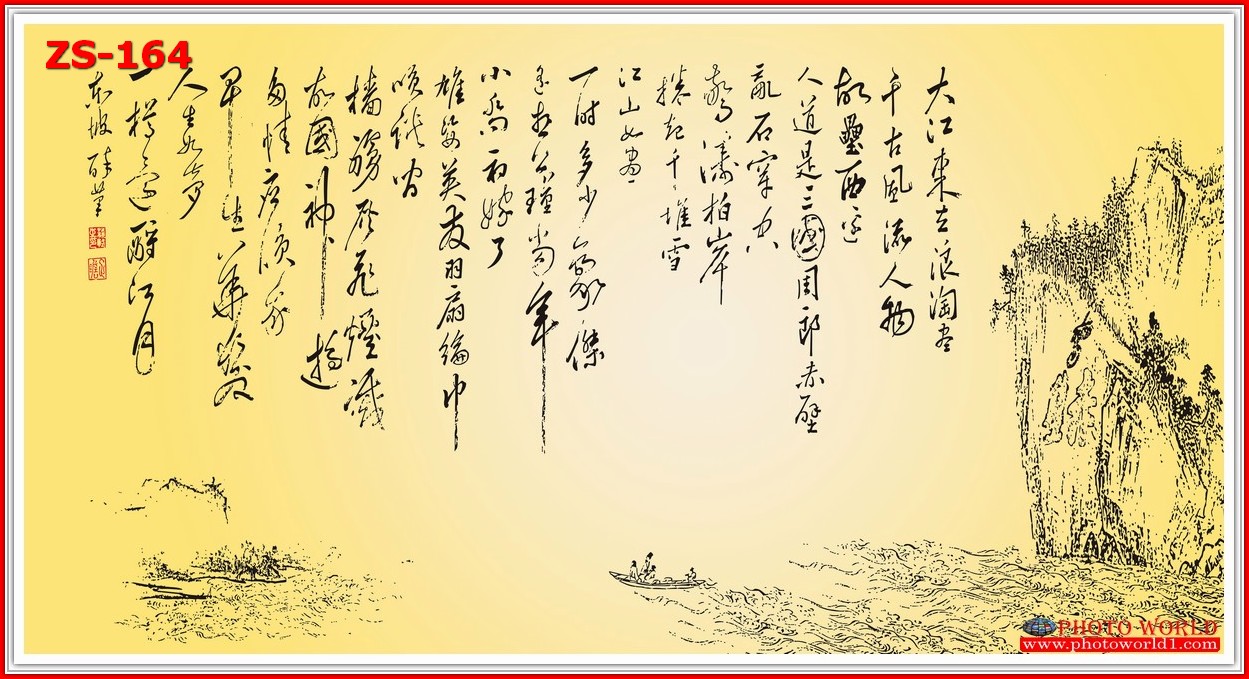 ZS-164
大江東去浪淘尽
千古風流人物
故壘西邊
人道是三國周郎赤壁
亂石穿空
驚濤拍岸
捲起千堆雪
江山如畫
一时多少豪傑
遙想公瑾當年
小喬初嫁了
雄姿英發羽扇綸巾
笑談間
檣艣灰飛煙滅
故國神遊
多情應笑我
早生華髮
人生如夢
一樽還酹江月
東坡醉筆
PHOTO WORLD
www.photoworld1.com